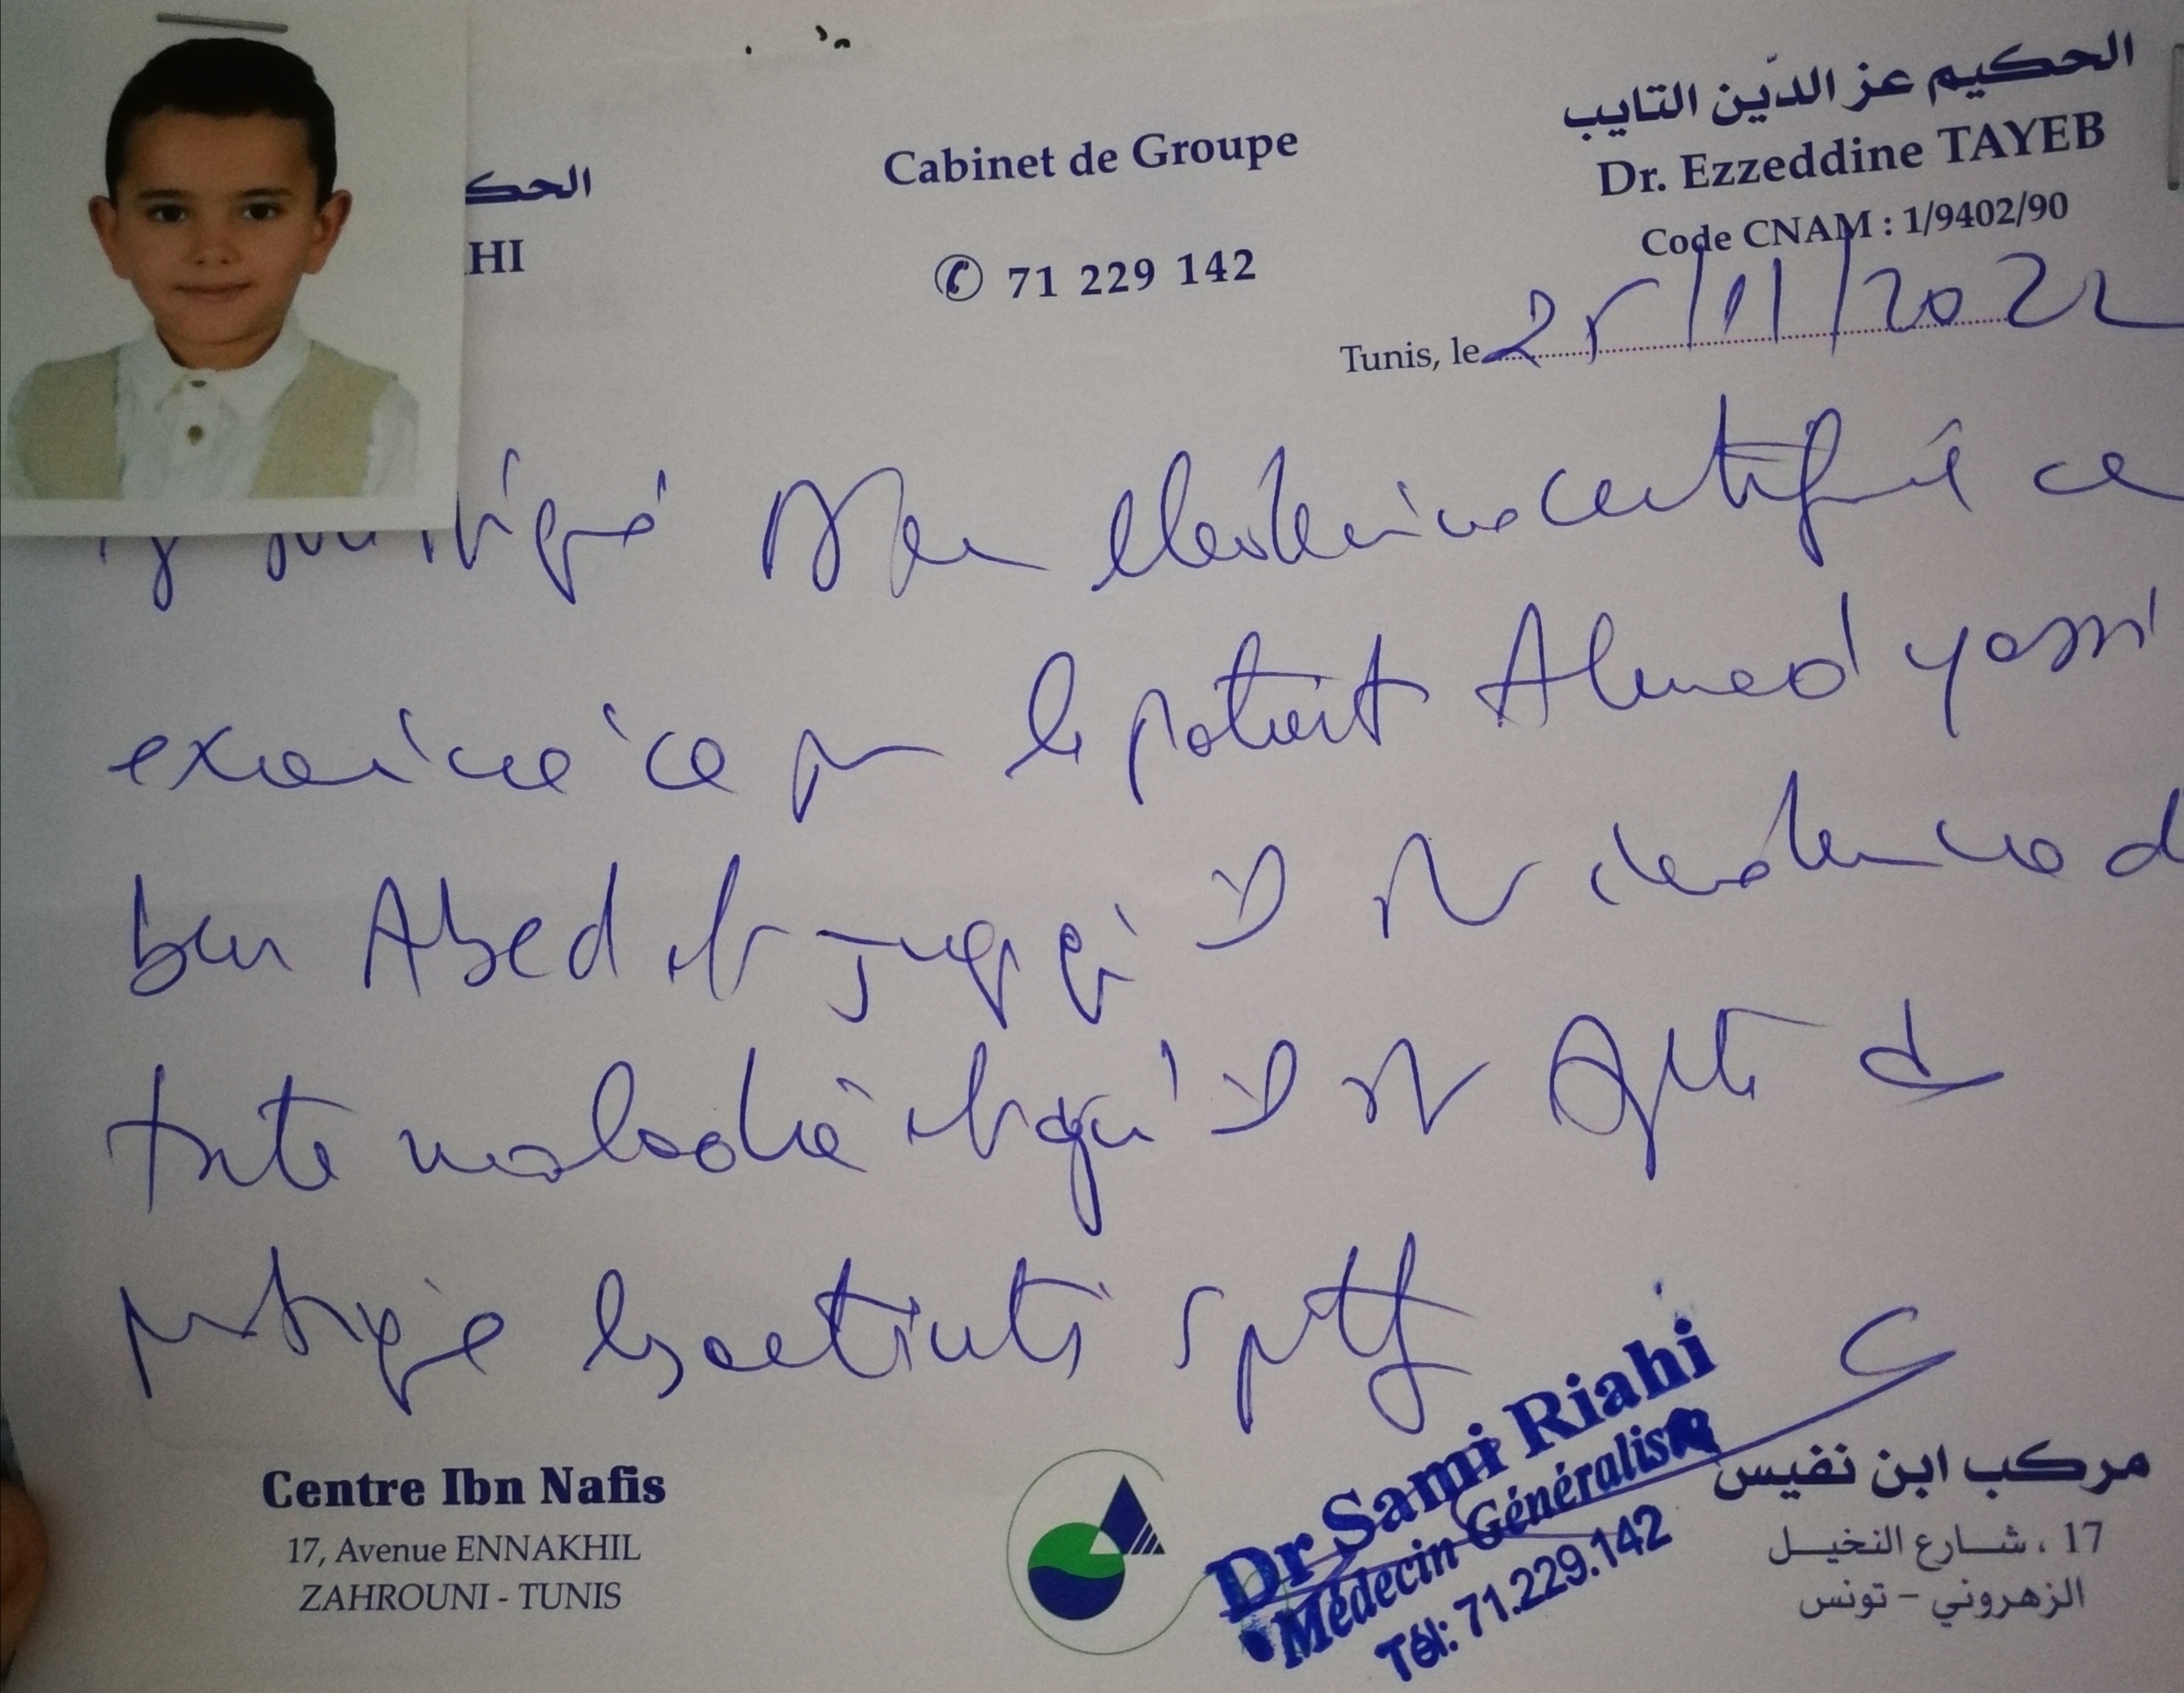 الحك
HI
Cabinet de Groupe
✆ 71 229 142
الحكيم عز الدّين التايب
Dr. Ezzeddine TAYEB
Code CNAM : 1/9402/90
Tunis, le 25/11/2022
certifié ce
examiné ce le patient Ahmed yassi
ben Abed et juge qu'il est indemne d
toute maladie et qu'il est apte à
pratiquer les activités sptf
Centre Ibn Nafis
17, Avenue ENNAKHIL
ZAHROUNI - TUNIS
Dr Sami Riahi
Médecin Généraliste
Tél: 71.229.142
مركب ابن نفيس
17 ، شـارع النخيـل
الزهروني - تونس